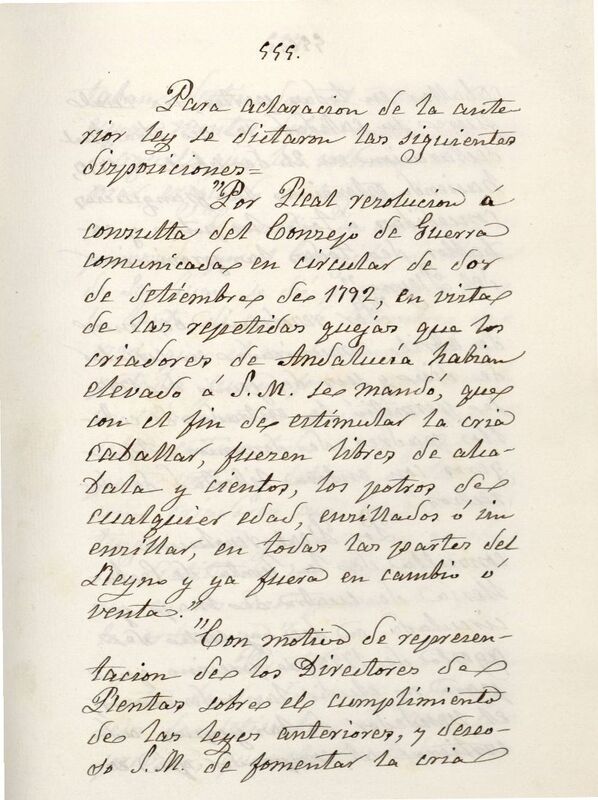 555.
Para aclaracion de la ante
rior ley se dictaron las siguientes
disposiciones=
"Por Real resolucion á
consulta del Consejo de Guerra
comunicada en circular de dos
de setiembre de 1792, en vista
de las repetidas quejas que los
criadores de Andalucía habian
elevado á S.M. se mandó, que
con el fin de estimular la cria
caballar, fuesen libres de alca-
bala y cientos, los potros de
cualquier edad, ensillados ó sin
ensillar, en todas las partes del
Reyno y ya fuera en cambio ó
venta."
"Con motivo de represen-
tacion de los Directores de
Rentas sobre el cumplimiento
de las leyes anteriores, y deseo-
so S.M. de fomentar la cria